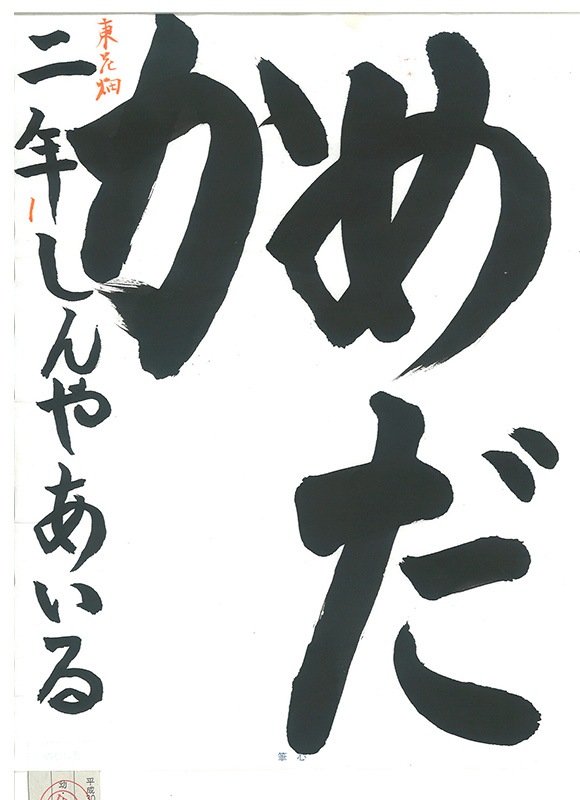 めだ
か
東花畑
二年しんやあいる
筆 心
平成30
幼・